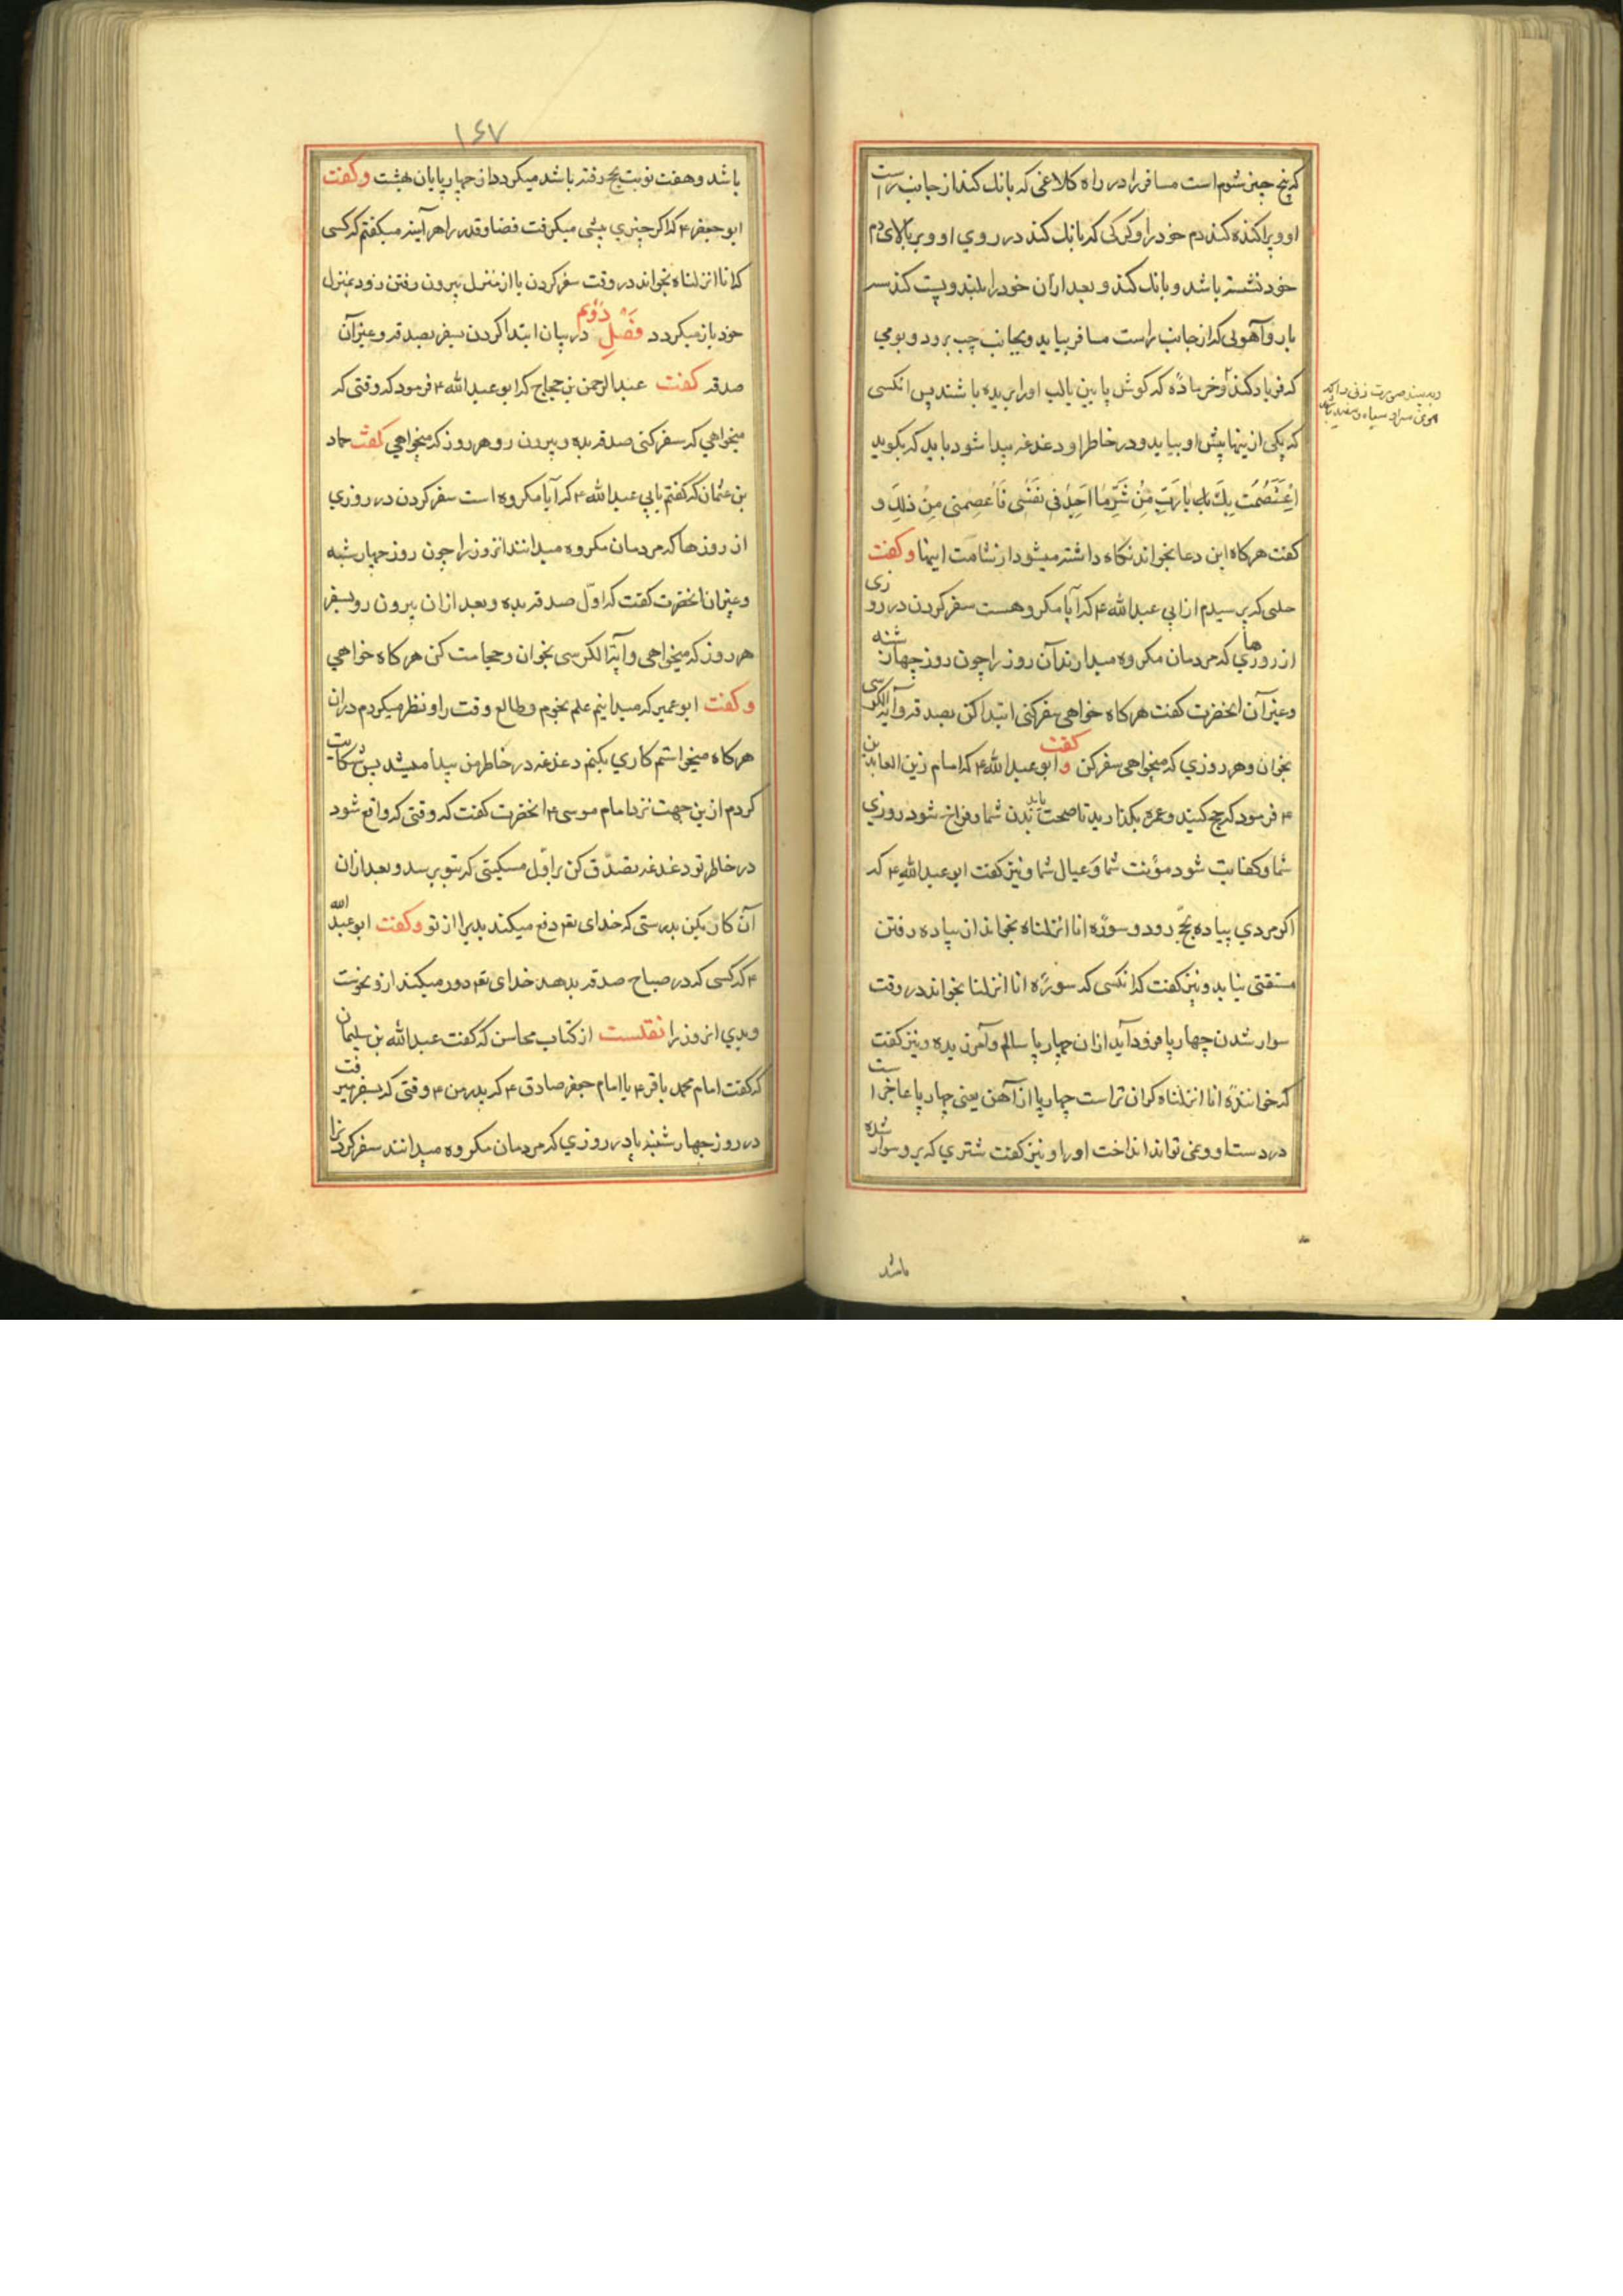 که پنج چیز شوم است مسافر را در راه کلاغی که بانک کند از جانب راست
او و پراکنده کند دم خود را و کرکی که بانک کند در روی او و بر بالای دم
خود نشسته باشد و بانک کند و بعد ازان خود را بلند و پست کند سه
بار و آهوئی که از جانب راست مسافر بیاید و بجانب چپ برود و بومی
که فریاد کند و خر ماده که کوش پا بین یالب او را بریده باشند پس انکسی
که یکی ازینها پیش او بیاید و در خاطر او دغدغه پیدا شود باید که بکوید
اعتصمت بك یا رب من شر ما اجد فی نفسی فاعصمنی من ذلك و
کفت هرکاه این دعا بخواند نکاه داشته میشود از شامت اینها و کفت
حلبی که پرسیدم از ابی عبدالله ۴ که آیا مکروهست سفر کردن در روزی
از روزهای که مردمان مکروه میدارند آن روز را چون روز چهارشنبه
و غیر آن انحضرت کفت هرکاه خواهی سفر کنی ابتدا کن بصدقه و آیة الکرسی
بخوان و هر روزی که میخواهی سفر کن و کفت ابو عبدالله ۴ که امام زین العابدین
۴ فرمود که حج کنید و عمره بکذارید تا صحت یابد بدن شما و فراخ شود روزی
شما و کفایت شود مؤنت شما و عیال شما و نیز کفت ابو عبدالله ۴ که
اکر مردی پیاده بحج رود و سوره انا انزلناه بخواند ان پیاده رفتن
مشقتی نیابد و نیز کفت که انکسی که سوره انا انزلنا بخواند در وقت
سوار شدن چهارپا فرود آید ازان چهارپا سالم و آمرزیده و نیز کفت
که خواننده انا انزلناه کران تراست چهارپا از آهن یعنی چهارپا عاجز است
در دست او و نمی تواند انداخت او را و نیز کفت شتری که برو سوار شده
باشد
و به بیند صورت زنی را که
موی سر او سیاه و سفید باشد
۱۶۷
باشد و هفت نوبت بحج رفته باشد میکردد از چهارپایان بهشت و کفت
ابو جعفر ۴ که اکر چیزی پیشی میکرفت قضا و قدر را هر آینه میکفتم که کسی
که انا انزلناه بخواند در وقت سفر کردن یا از منزل بیرون رفتن زود بمنزل
خود باز میکردد فصل دوّم در بیان ابتدا کردن سفر بصدقه و غیر آن
صدقه کفت عبدالرحمن بن حجاج که ابو عبدالله ۴ فرمود که وقتی که
میخواهی که سفر کنی صدقه بده و بیرون رو هر روز که میخواهی کفت حماد
بن عثمان که کفتم بابی عبدالله ۴ که آیا مکروه است سفر کردن در روزی
از روزها که مردمان مکروه میدانند انروز را چون روز چهارشنبه
و غیر ان انحضرت کفت که اوّل صدقه بده و بعد ازان بیرون رو بسفر
هر روز که میخواهی و آیة الکرسی بخوان و حجامت کن هرکاه خواهی
و کفت ابو عمیر که میدانیم علم نجوم و طالع وقت را و نظر میکردم دران
هرکاه میخواستم کاری بکنم دغدغه در خاطر من پیدا میشد پس شکایت
کردم ازین جهت نزد امام موسی ۴ انحضرت کفت که وقتی که واقع شود
در خاطر تو دغدغه تصدّق کن بر اوّل مسکینی که بتو برسد و بعد ازان
آن کار بکن بدرستی که خدای تعم دفع میکند بدیرا از تو و کفت ابو عبدالله
۴ که کسی که در صباح صدقه بدهد خدای تعم دور میکند ازو نحوست
و بدی انروز را نقلست از کتاب محاسن که کفت عبدالله بن سلیمان
که کفت امام محمد باقر ۴ یا امام جعفر صادق ۴ که پدر من ۴ وقتی که بسفر میرفت
در روز چهارشنبه یا در روزی که مردمان مکروه میدانند سفر کردنرا